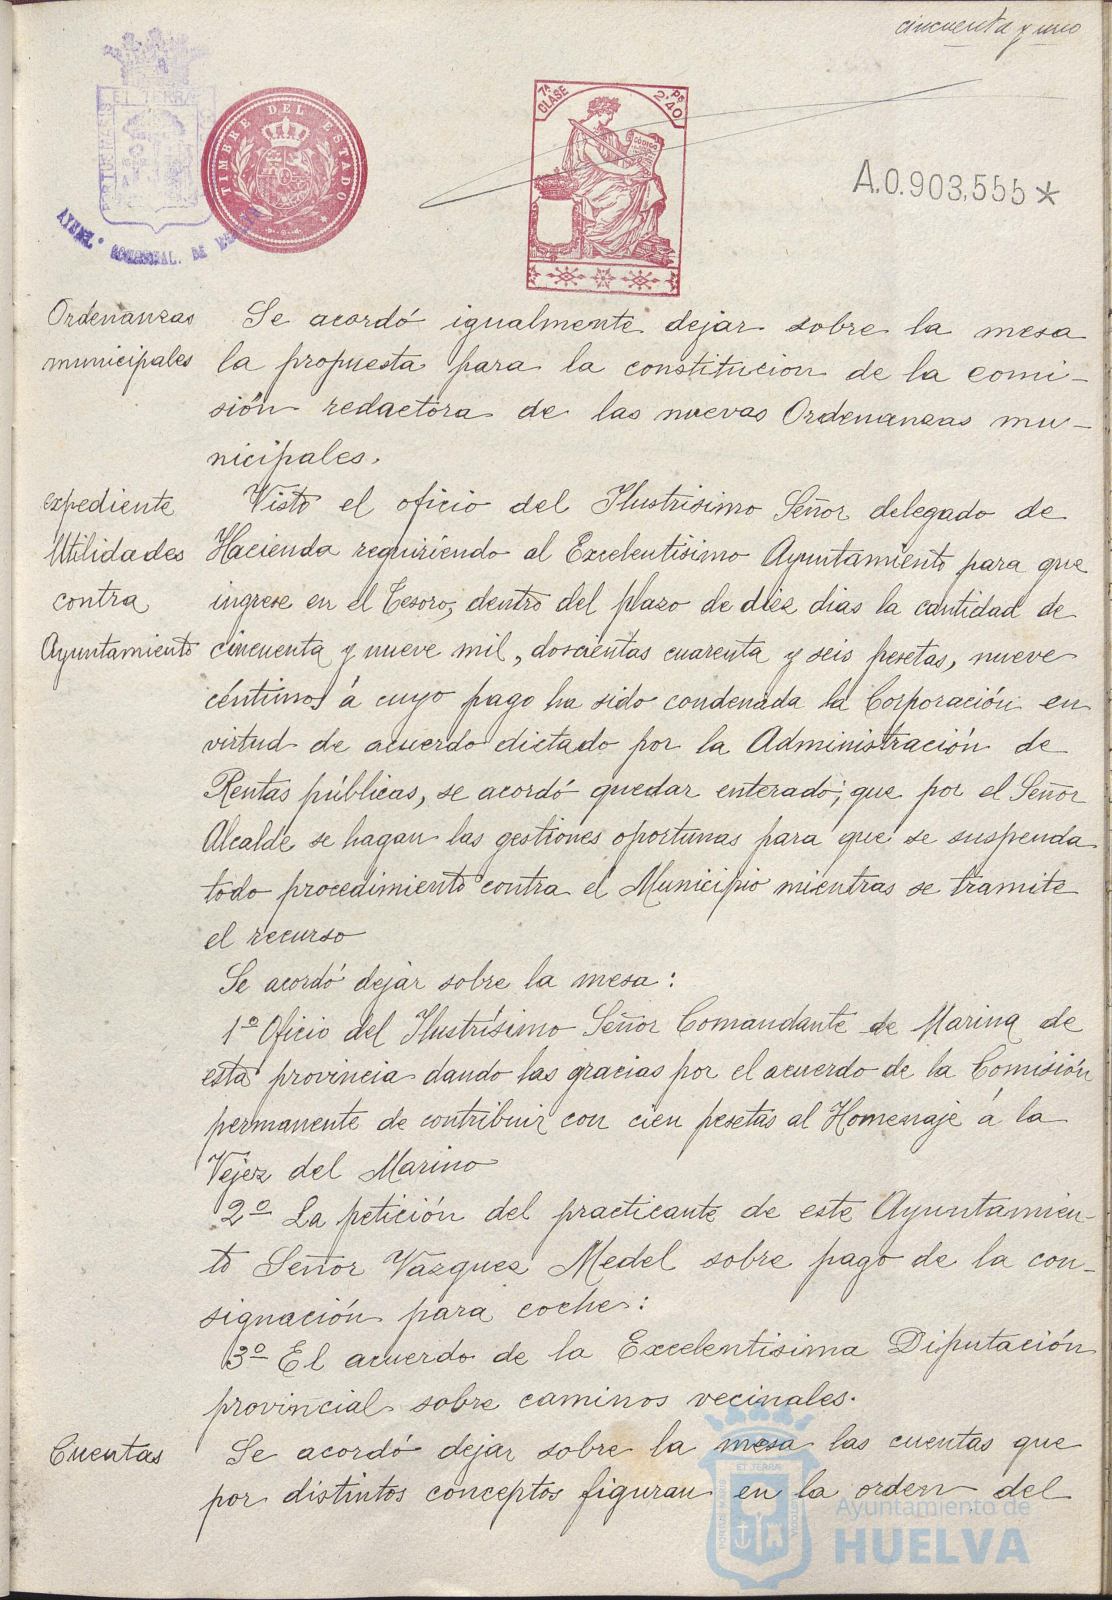 cincuenta y uno
ET TERRA
TIMBRE DEL ESTADO
7ª CLASE
2'40 Pˢ
CÓDIGO
A.0.903,555*
Ordenanzas
municipales
Se acordó igualmente dejar sobre la mesa
la propuesta para la constitucion de la comi-
sión redactora de las nuevas Ordenanzas mu-
nicipales.
expediente
Utilidades
contra
Ayuntamiento
Visto el oficio del Ilustrisimo Señor delegado de
Hacienda requiriendo al Excelentisimo Ayuntamiento para que
ingrese en el Tesoro, dentro del plazo de diez dias la cantidad de
cincuenta y nueve mil, doscientas cuarenta y seis pesetas, nueve
céntimos á cuyo pago ha sido condenada la Corporación en
virtud de acuerdo dictado por la Administración de
Rentas públicas, se acordó quedar enterado; que por el Señor
Alcalde se hagan las gestiones oportunas para que se suspenda
todo procedimiento contra el Municipio mientras se tramite
el recurso
Se acordó dejar sobre la mesa:
1º Oficio del Ilustrísimo Señor Comandante de Marina de
esta provincia dando las gracias por el acuerdo de la Comisión
permanente de contribuir con cien pesetas al Homenaje á la
Vejez del Marino
2º La petición del practicante de este Ayuntamien-
to Señor Vazquez Medel sobre pago de la con-
signación para coche:
3º El acuerdo de la Excelentisima Diputación
provincial sobre caminos vecinales.
Cuentas
Se acordó dejar sobre la mesa las cuentas que
por distintos conceptos figuran en la orden del
ET TERRA
PORTUS MARIS
CUSTODIA
Ayuntamiento de
HUELVA